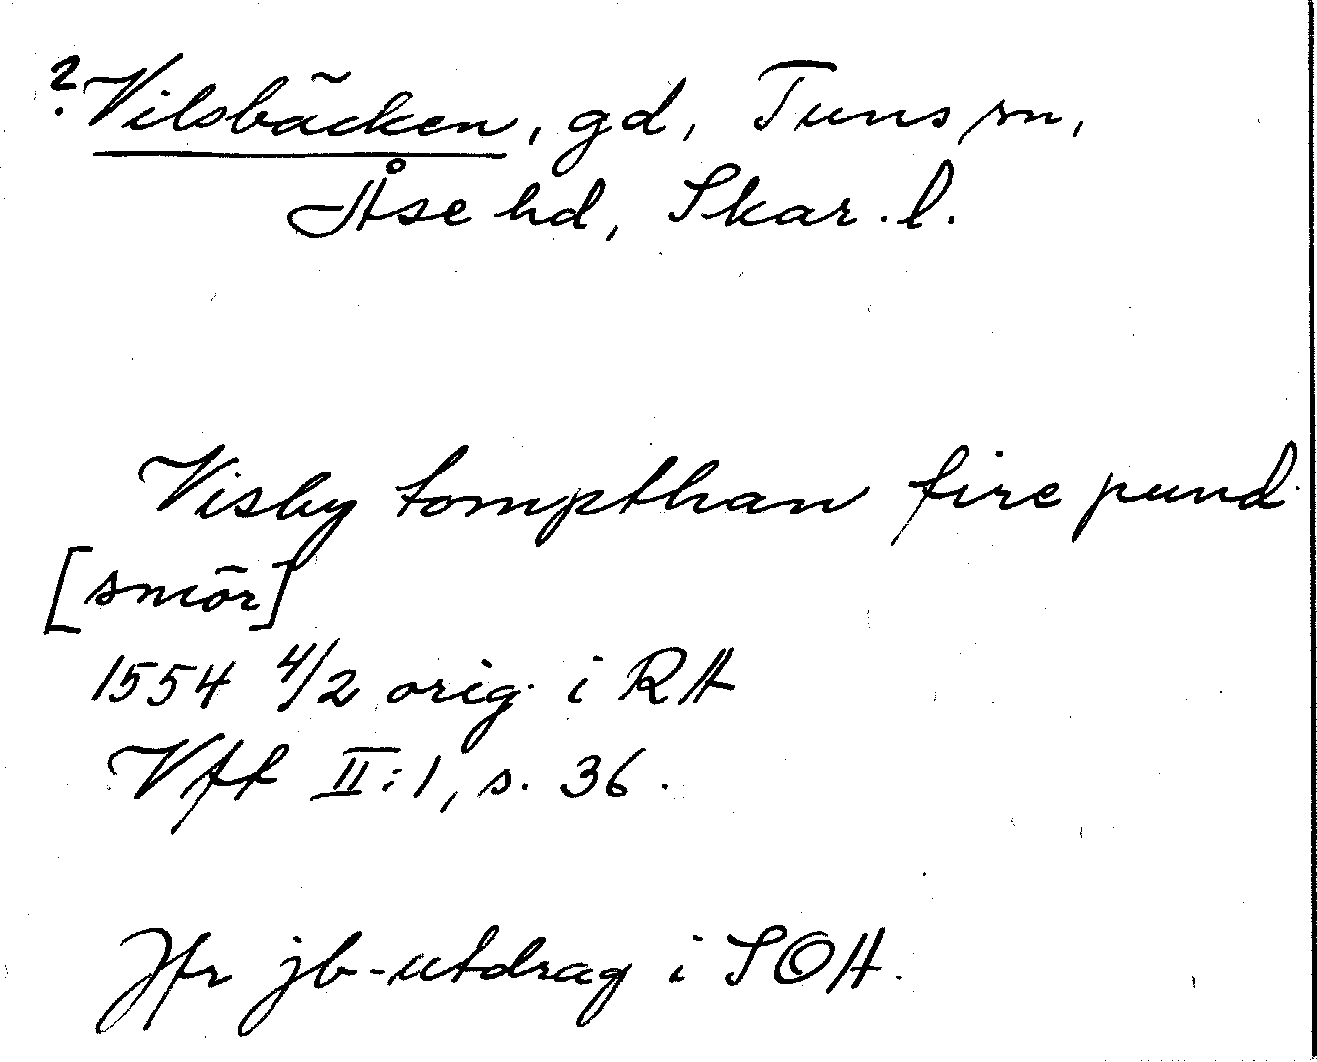 ? Vilsbäcken, gd, Tuns sn,
Åse hd, Skar. l.
Visby tompthan fire pund
[smör]
1554 4/2 orig. i RA
Vft II:1, s. 36.
Jfr jb-utdrag i SOA.